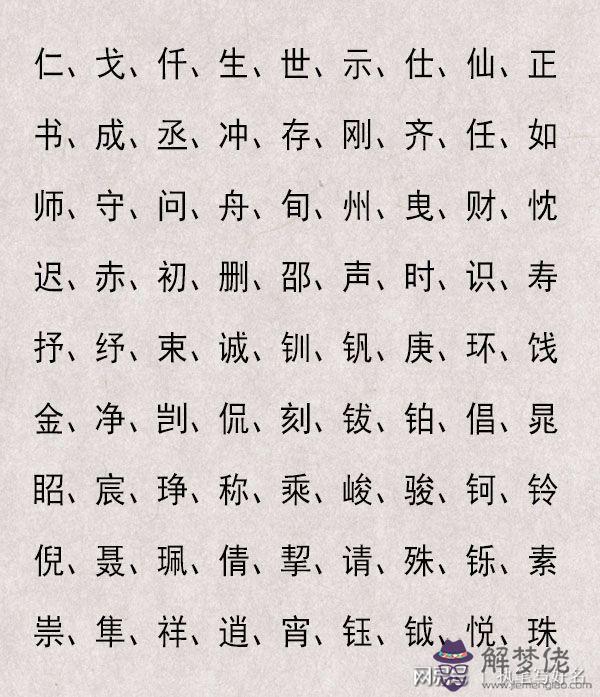 仁、戈、仟、生、世、示、仕、仙、正
书、成、丞、冲、存、刚、齐、任、如
师、守、问、舟、旬、州、曳、财、忱
迟、赤、初、删、邵、声、时、识、寿
抒、纾、束、诚、钏、钒、庚、环、饯
金、净、剀、侃、刻、钹、铂、倡、晁
眧、宸、琤、称、乘、峻、骏、钶、铃
倪、聂、珮、倩、挈、请、殊、铄、素
祟、隼、祥、逍、宵、钰、钺、悦、珠
网易号 | 执笔写好名
解梦佬
www.jiemenglao.com